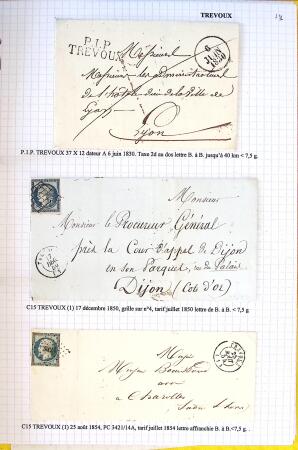 TREVOUX
P.I.P.
TREVOUX
6
JUIN
1830
Messieurs
Messieurs les administrateurs
de l'hospice de la Ville de
Lyon
Lyon
P.I.P. TREVOUX 37 X 12 dateur A 6 juin 1830. Taxe 2d au dos lettre B. à B. jusqu'à 40 km < 7,5 g.
Monsieur
Monsieur le Procureur Général
près la Cour d'appel de Dijon
en son Parquet, rue du Palais
Dijon (Cote d'or)
C15 TREVOUX (1) 17 décembre 1850, grille sur n°4, tarif juillet 1850 lettre de B. à B. < 7,5 g
TREVOUX
à Charolles
C15 TREVOUX (1) 25 août 1854, PC 3421/14A, tarif juillet 1854 lettre affranchie B. à B.<7,5 g.